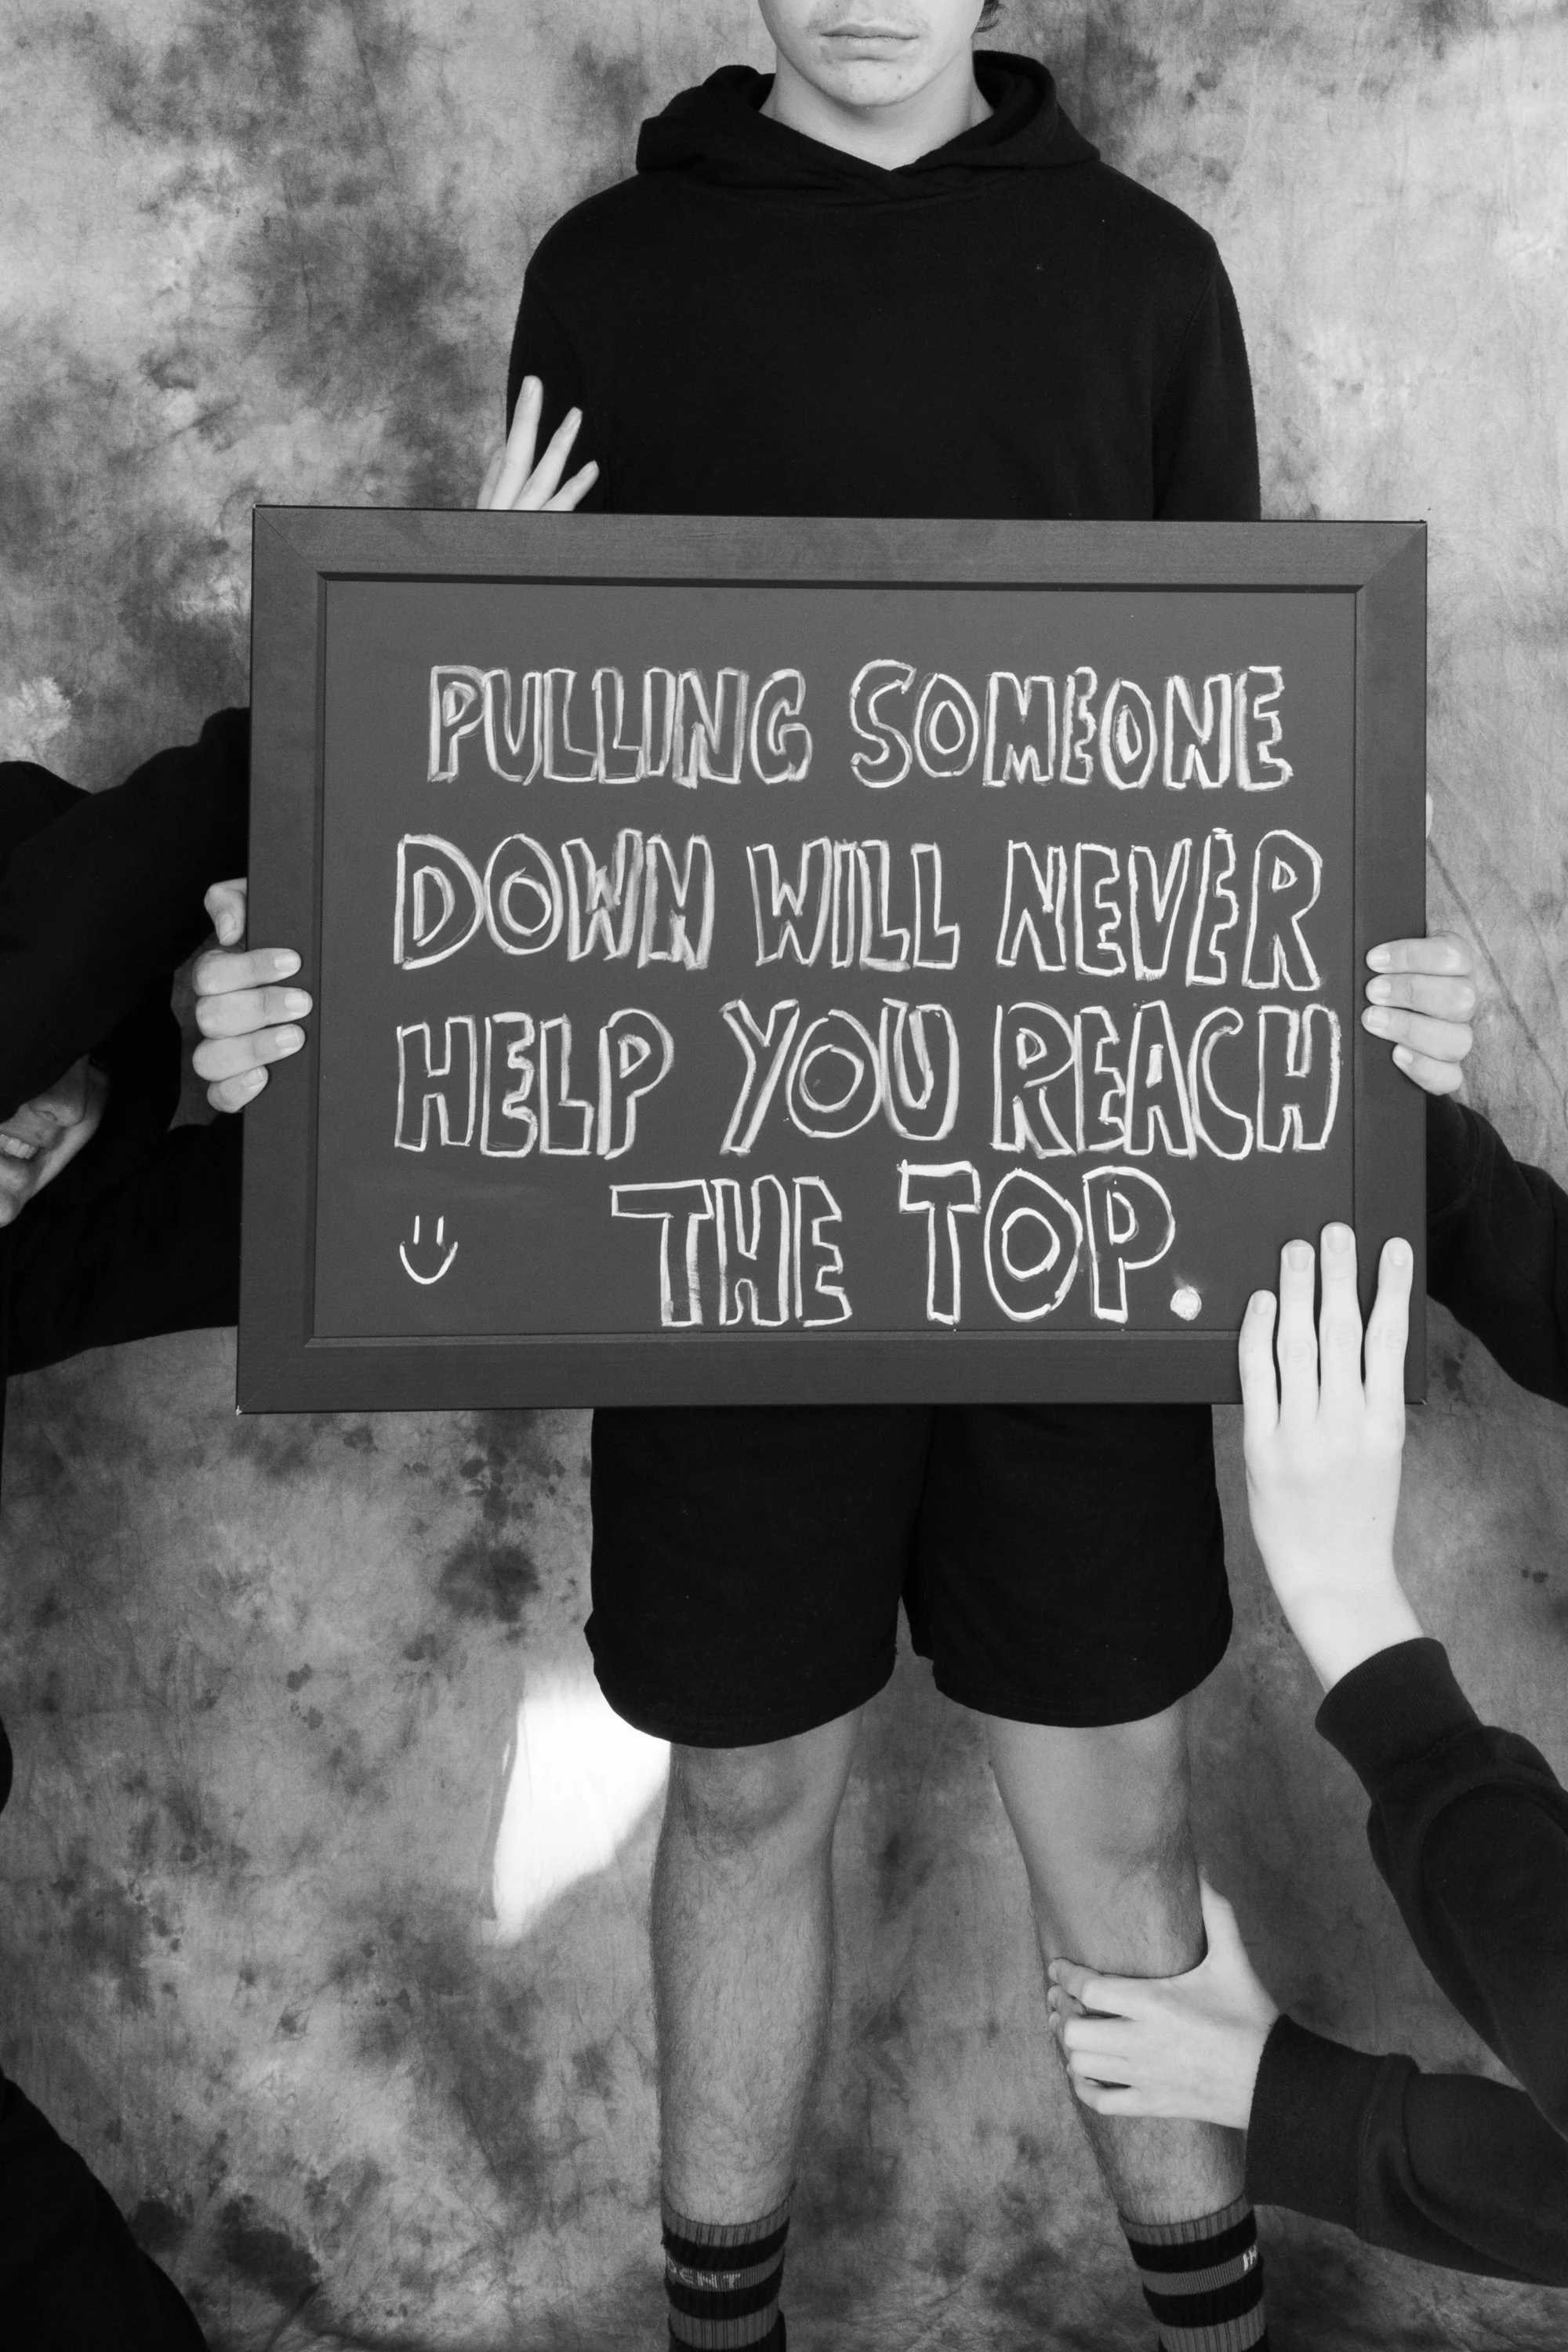 PULLING SOMEONE
DOWN WILL NEVER
HELP YOU REACH
THE TOP.